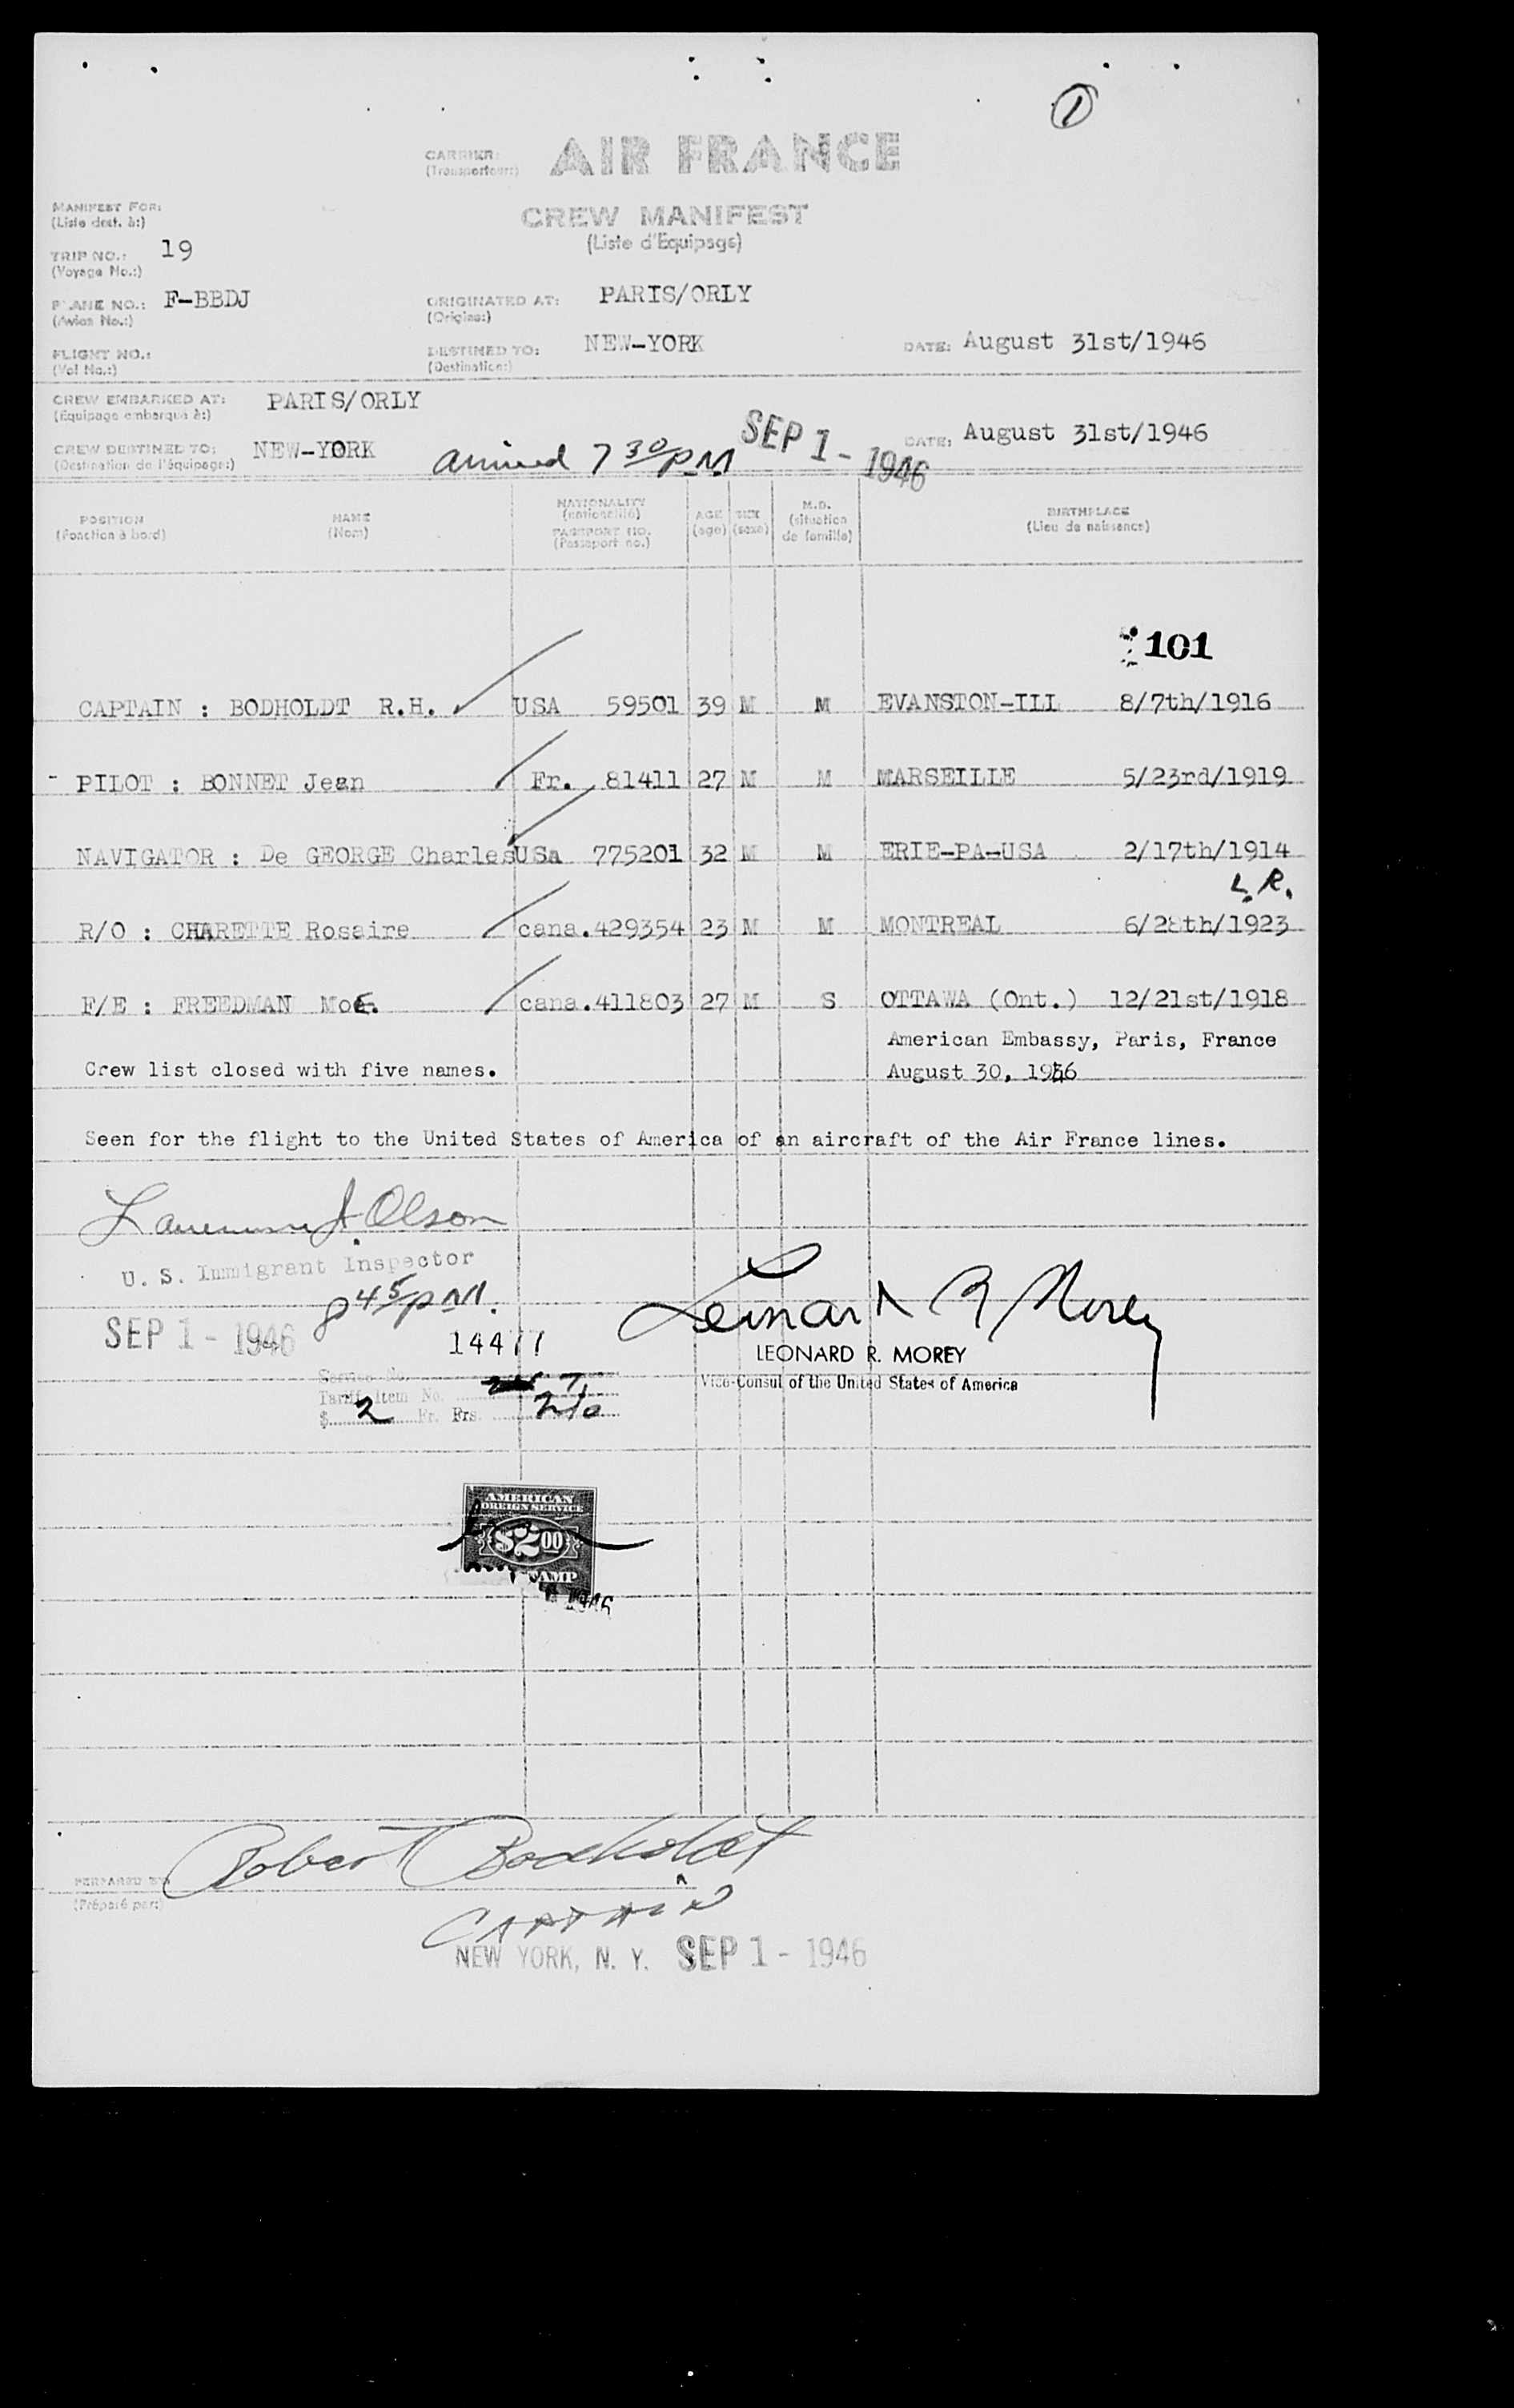 1
CARRIER: AIR FRANCE
(Transporteur:)
MANIFEST FOR:
(Liste dest. à:)
CREW MANIFEST
(Liste d'Equipage)
TRIP NO.: 19
(Voyage No.:)
PLANE NO.: F-BBDJ
(Avion No.:)
ORIGINATED AT: PARIS/ORLY
(Origine:)
FLIGHT NO.:
(Vol No.:)
DESTINED TO: NEW-YORK
(Destination:)
DATE: August 31st/1946
CREW EMBARKED AT: PARIS/ORLY
(Equipage embarqué à:)
CREW DESTINED TO: NEW-YORK
(Destination de l'équipage:)
arrived 7 30 PM SEP 1 - 1946
DATE: August 31st/1946
POSITION
(Fonction à bord)
NAME
(Nom)
NATIONALITY
(nationalité)
PASSPORT NO.
(Passeport no.)
AGE
(age)
SEX
(sexe)
M.D.
(situation
de famille)
BIRTHPLACE
(Lieu de naissance)
101
CAPTAIN : BODHOLDT R.H. USA 59501 39 M M EVANSTON-ILL 8/7th/1916
- PILOT : BONNET Jean Fr. 81411 27 M M MARSEILLE 5/23rd/1919
NAVIGATOR : De GEORGE Charles USa 775201 32 M M ERIE-PA-USA 2/17th/1914
L.R.
R/O : CHARETTE Rosaire cana. 429354 23 M M MONTREAL 6/28th/1923
F/E : FREEDMAN Moe. cana. 411803 27 M S OTTAWA (Ont.) 12/21st/1918
American Embassy, Paris, France
Crew list closed with five names.
August 30, 1946
Seen for the flight to the United States of America of an aircraft of the Air France lines.
Lawrence J. Olson
U. S. Immigrant Inspector
8 45 PM.
SEP 1 - 1946
14477
Leonard R Morey
LEONARD R. MOREY
Vice-Consul of the United States of America
Service No.
Tariff Item No. 7
$ 2 Fr. Frs. 240
AMERICAN
FOREIGN SERVICE
$2.00
STAMP
PREPARED BY:
(Préparé par:)
Robert Bodholdt
CAPTAIN
NEW YORK, N. Y. SEP 1 - 1946